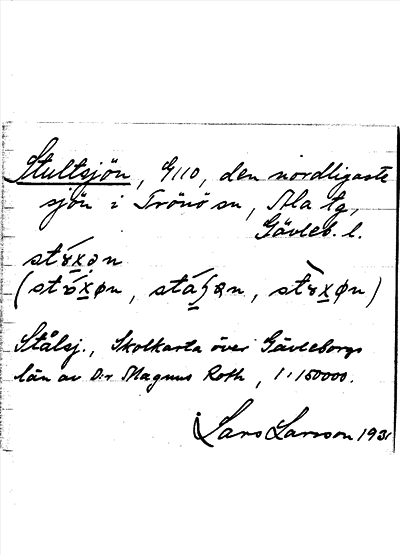 Stultsjön, G110, den nordligaste
sjön i Trönö sn, Ala tg,
Gävleb. l.
Stålsj., Skolkarta över Gävleborgs
län av D:r Magnus Roth, 1:150000.
Lars Larsson 193